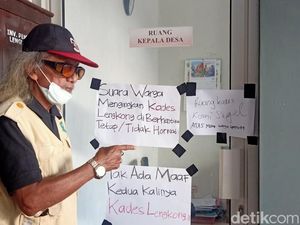 RUANG
KEPALA DESA
Suara Warga
Menginginkan Kades
Lengkong di Berhentikan
Tetap / Tidak Hormat
Ruang Kades
Kami Segel
Tak Ada Maaf
Kedua Kalinya
Kades Lengkong
detikcom